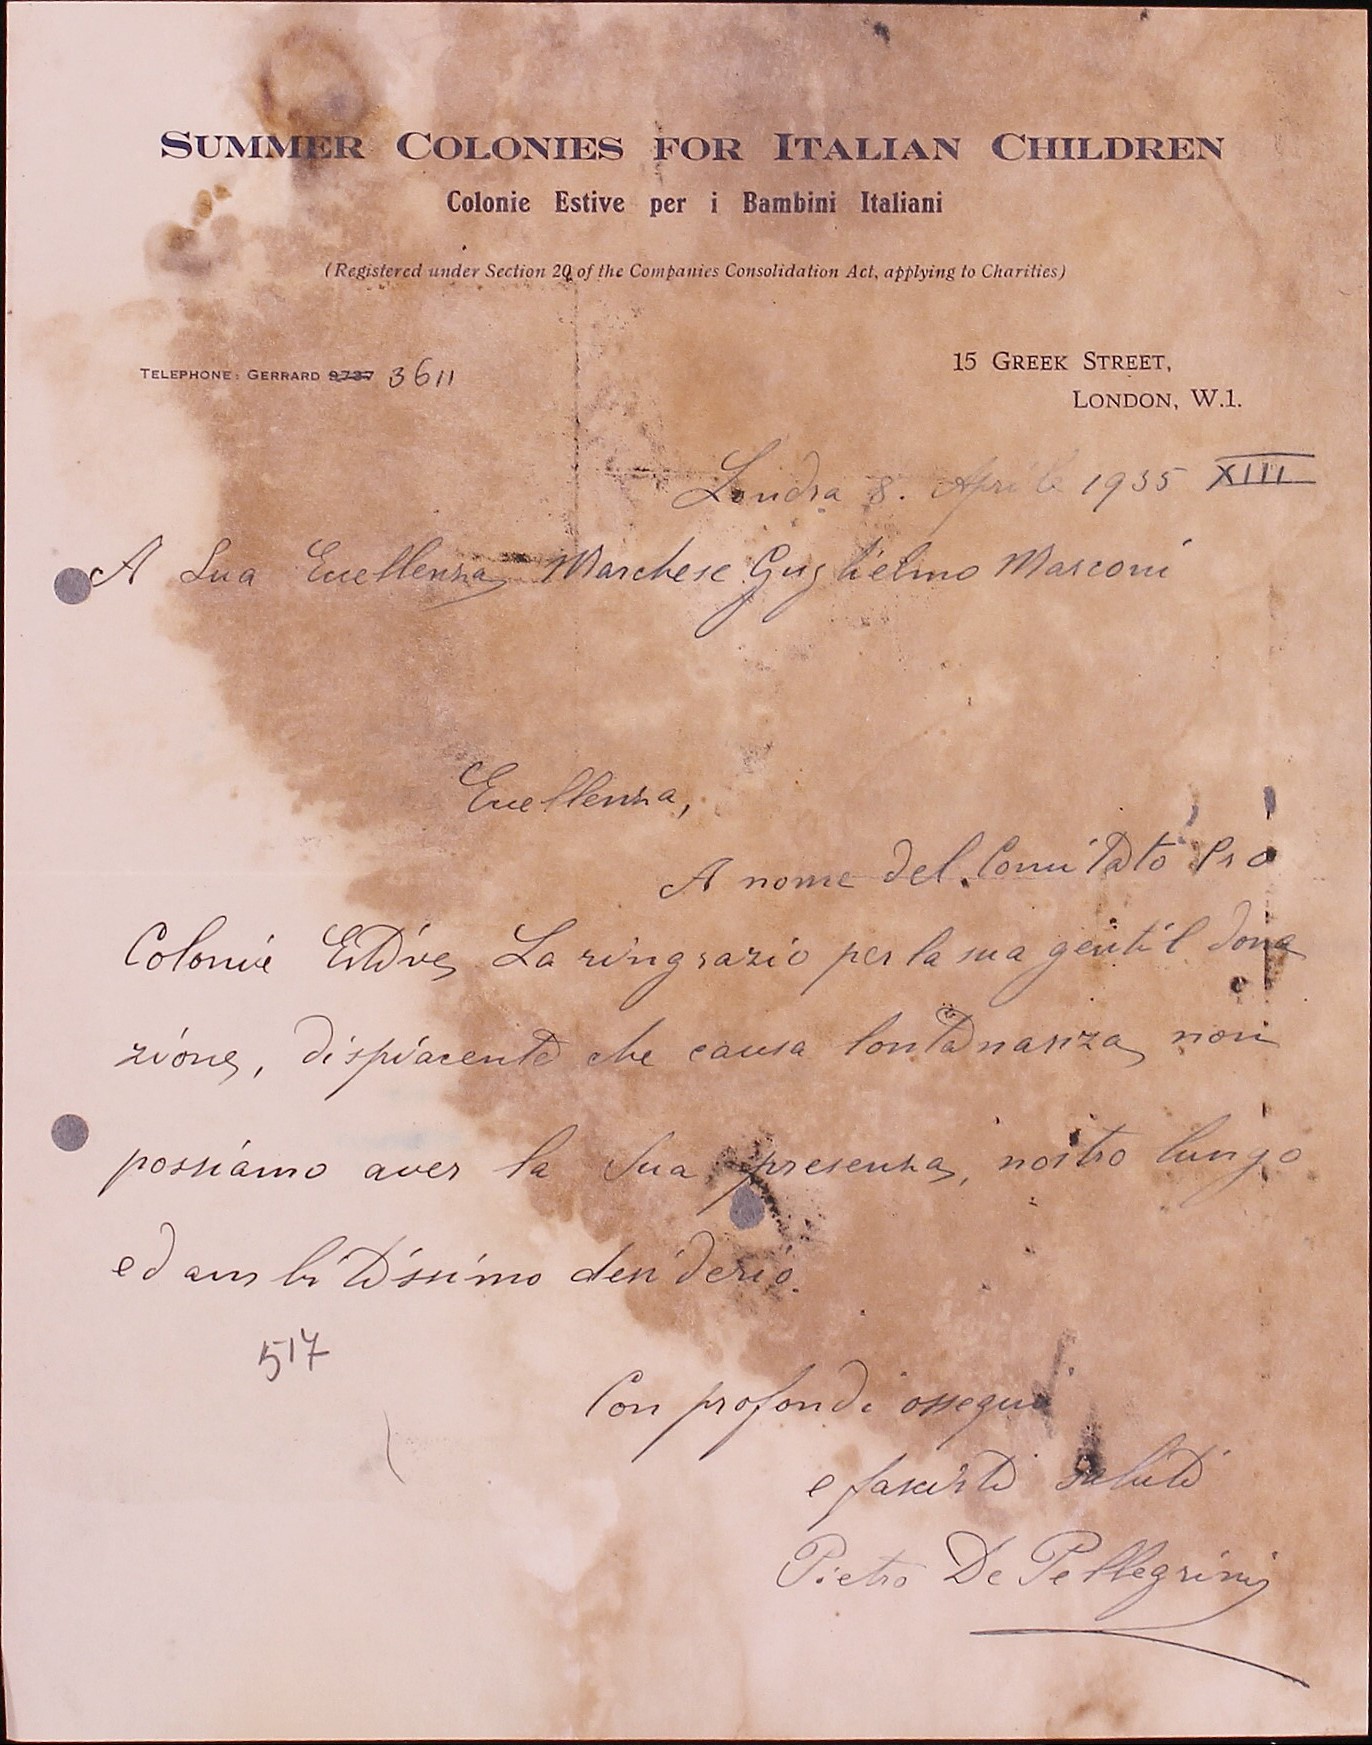 SUMMER COLONIES FOR ITALIAN CHILDREN
Colonie Estive per i Bambini Italiani
(Registered under Section 20 of the Companies Consolidation Act, applying to Charities)
TELEPHONE: GERRARD 9737 3611
15 GREEK STREET,
LONDON, W.1.
Londra 8. Aprile 1935 XIII
A Sua Eccellenza Marchese Guglielmo Marconi
Eccellenza,
A nome del Comitato Pro
Colonie Estive La ringrazio per la sua gentil dona
zione, dispiacente che causa lontananza non
possiamo aver la Sua presenza, nostro lungo
ed ambitissimo desiderio.
517
Con profondi ossequi
e fascisti saluti
Pietro De Pellegrini